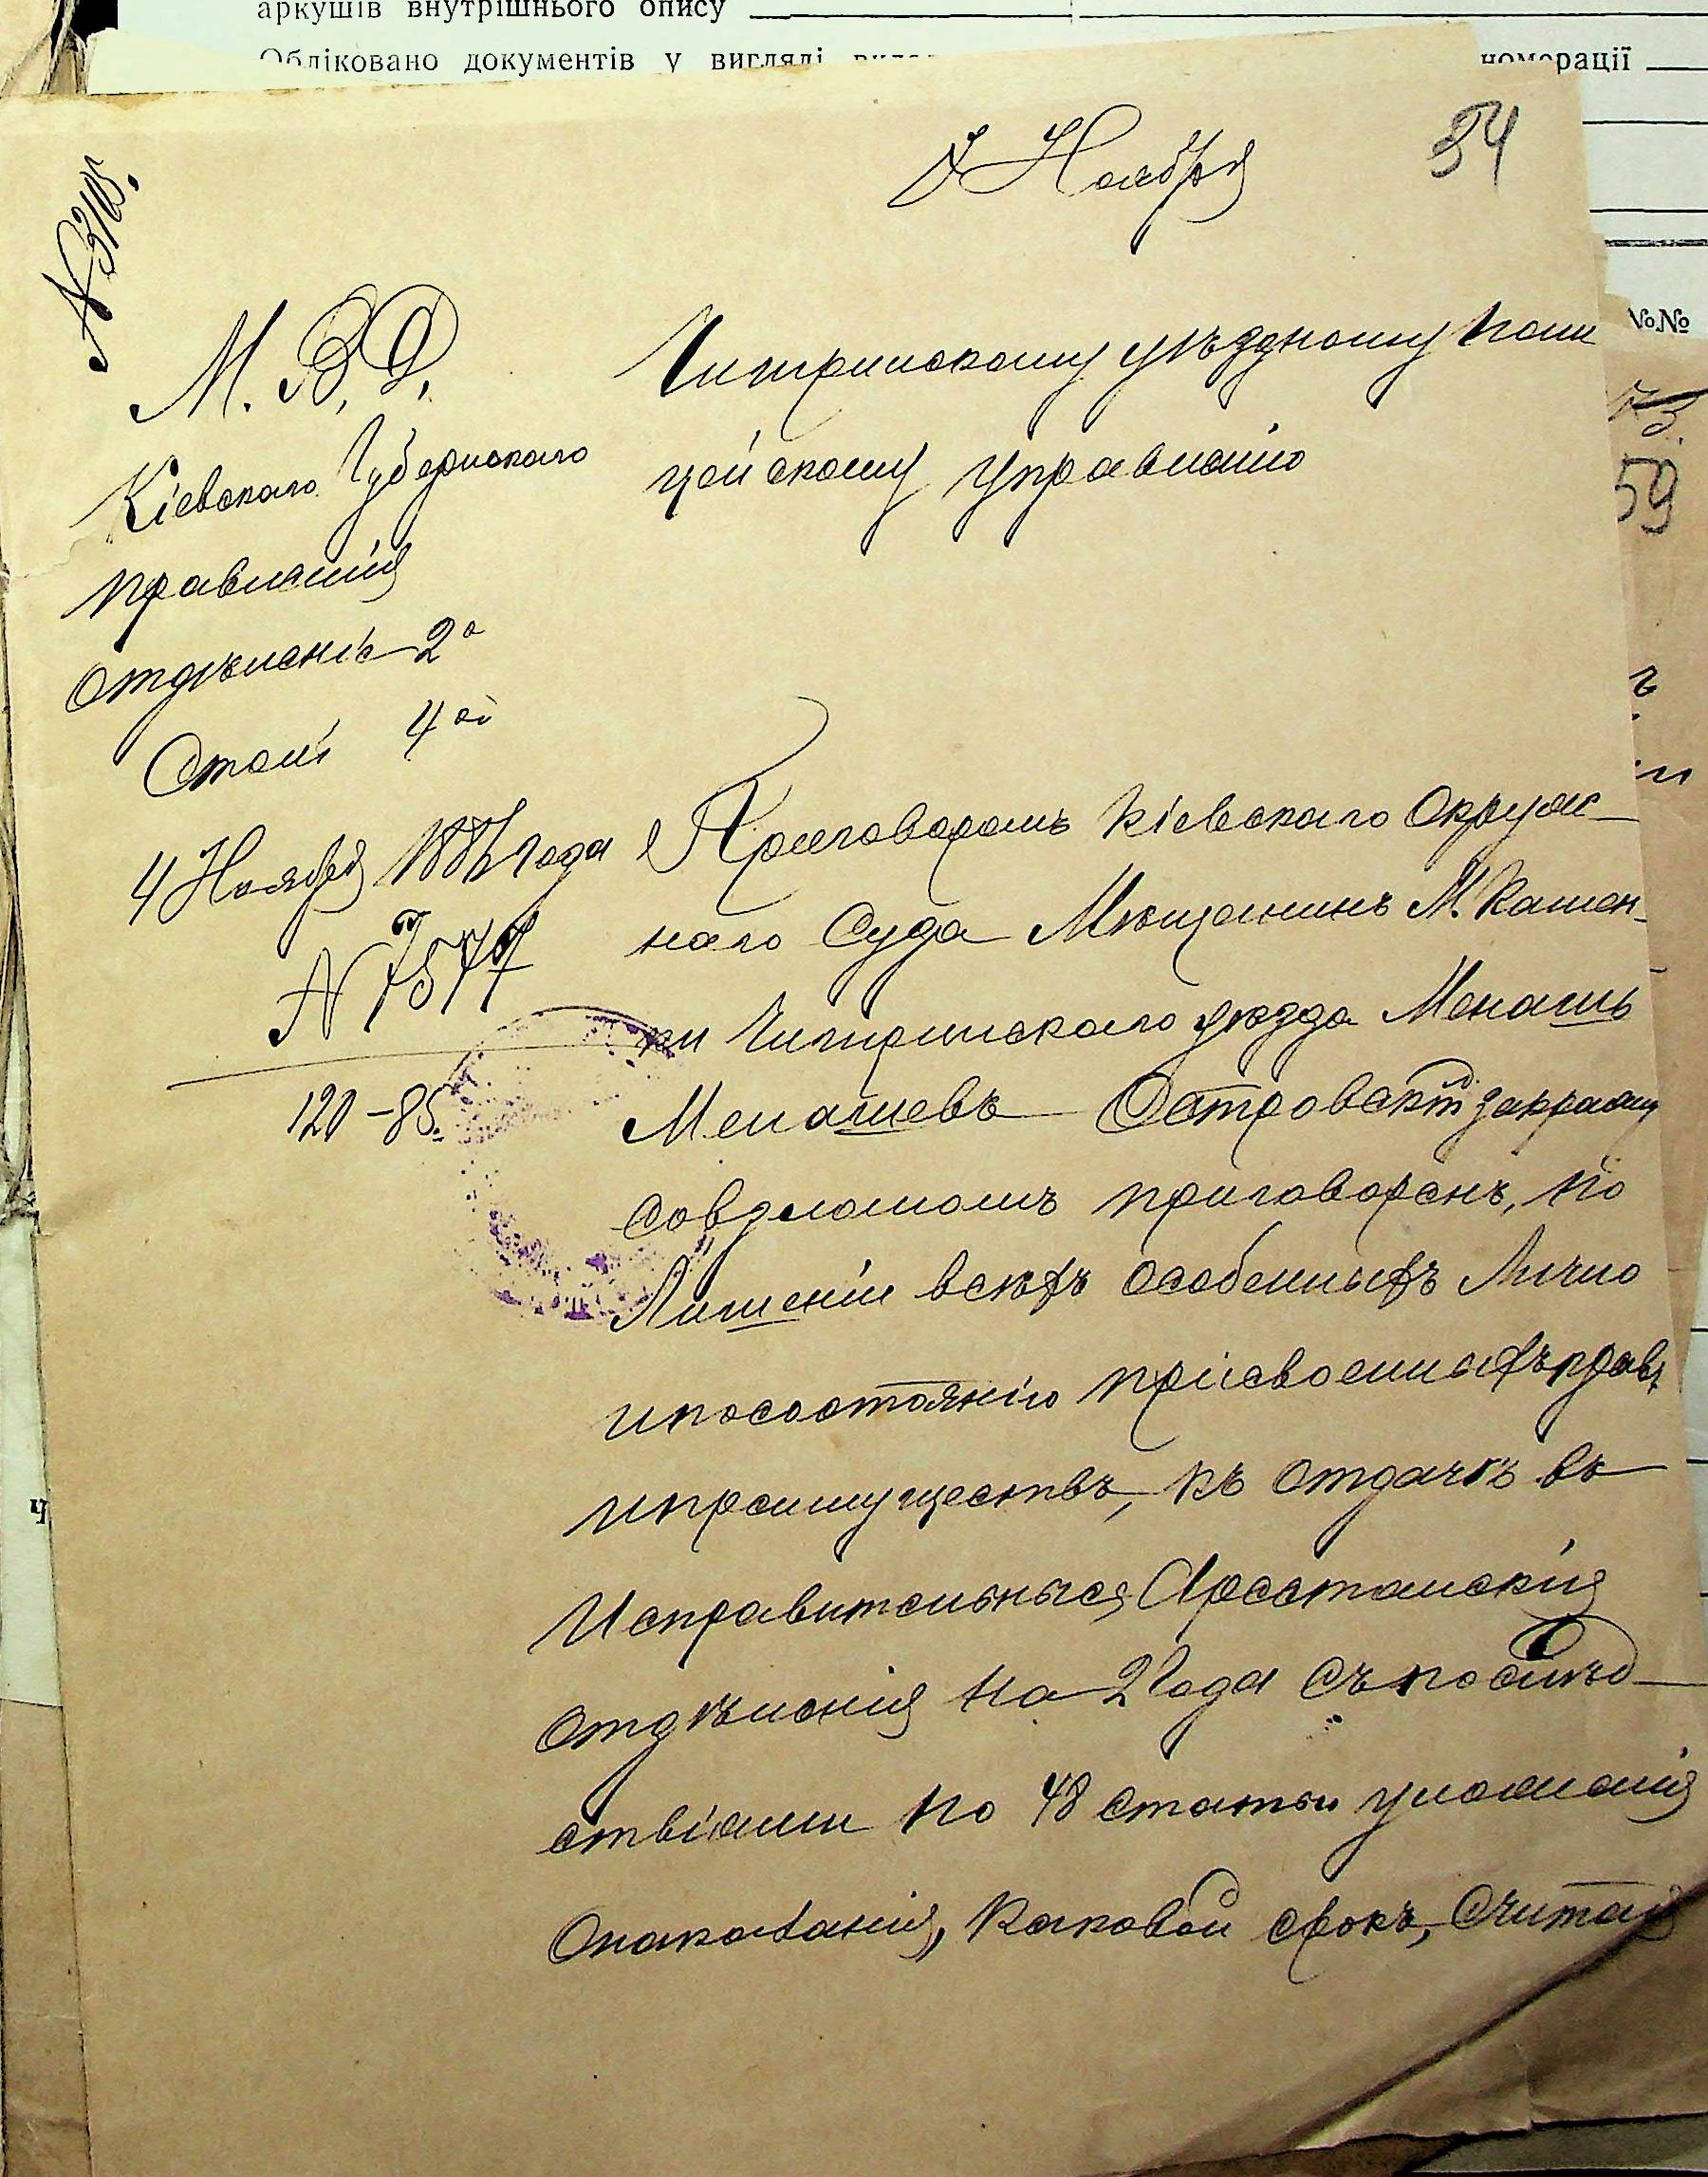 аркушів внутрішнього опису
Обліковано документів у вигляді
номерації
7 Ноября
34
№ 3105.
М. В. Д.
Кіевскаго Губернскаго
правленія
отдѣленіе 2е
Столъ 4ой
4 Ноября 188 года
№ 7577
120-85.
Чигринскому уѣздному поли
цейскому управленію
№№
59
Приговоромъ Кіевскаго Окруж-
наго Суда Мѣщанинъ М. Камен-
ки Чигиринскаго уѣзда Менашь
Менашевъ Островскій за кражу
совзломомъ приговоренъ, по
Лишеніи всѣхъ особенныхъ Лично
ипосостоянію присвоенныхъ правъ
ипреимуществъ, къ отдачѣ въ
Исправительныя Арестанскія
отдѣленія на 2 года съ послѣд-
ствіями по 48 статьи уложенія
Онаказаніи, каковой срокъ, Считая